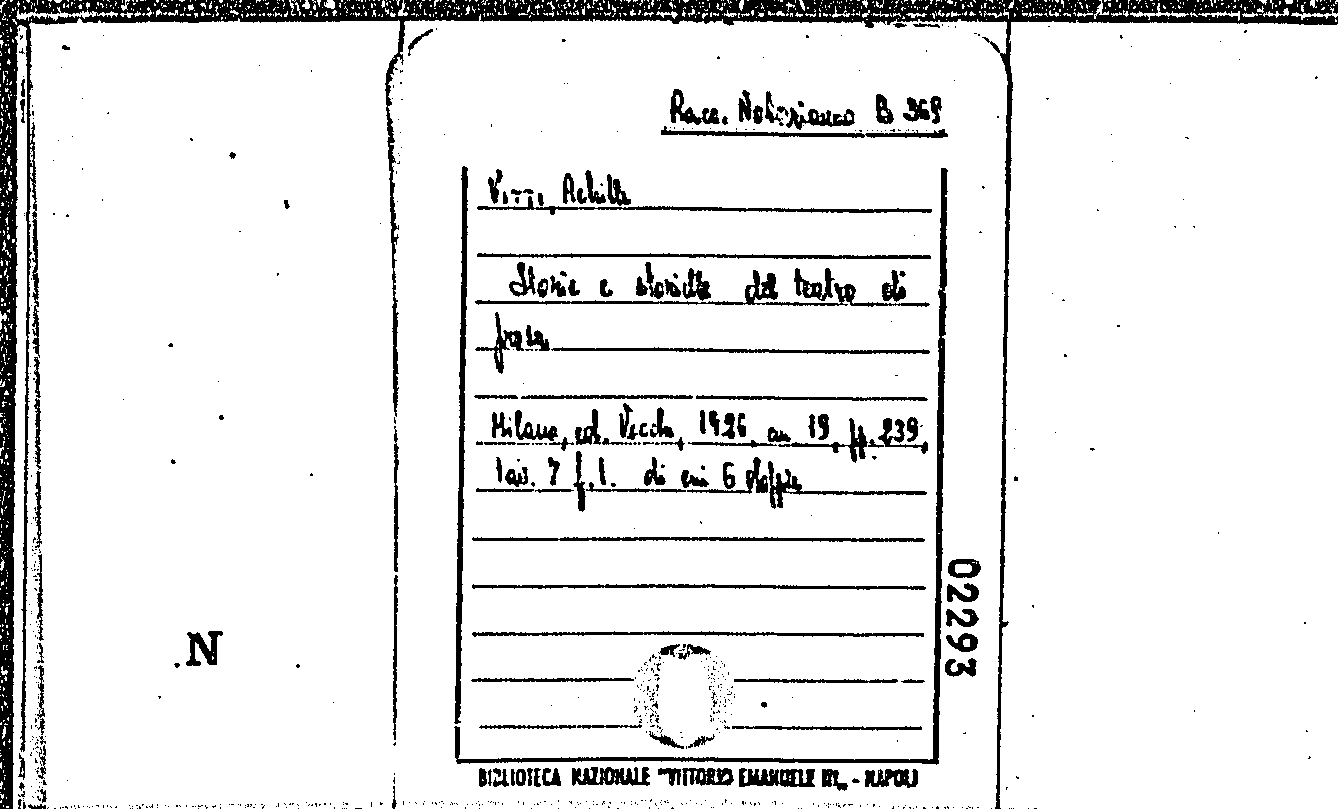 Racc. Notarianno B 369
Vitti, Achille
Storie e storielle del teatro di
prosa
Milano, ed. Vecchi, 1926, in 19, pp. 239,
tav. 7 f.t. di cui 6 doppie
02293
N
BIBLIOTECA NAZIONALE "VITTORIO EMANUELE III„ - NAPOLI